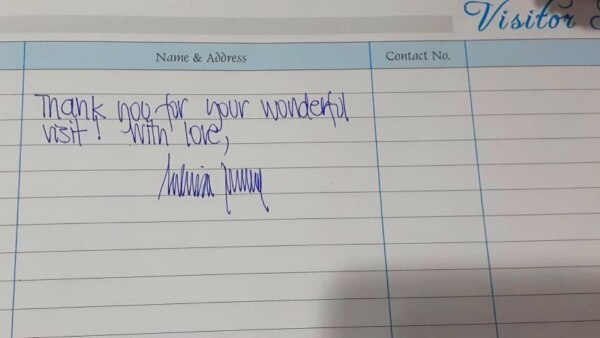 Visitor
Name & Address
Contact No.
Thank you for your wonderful
visit! With love,